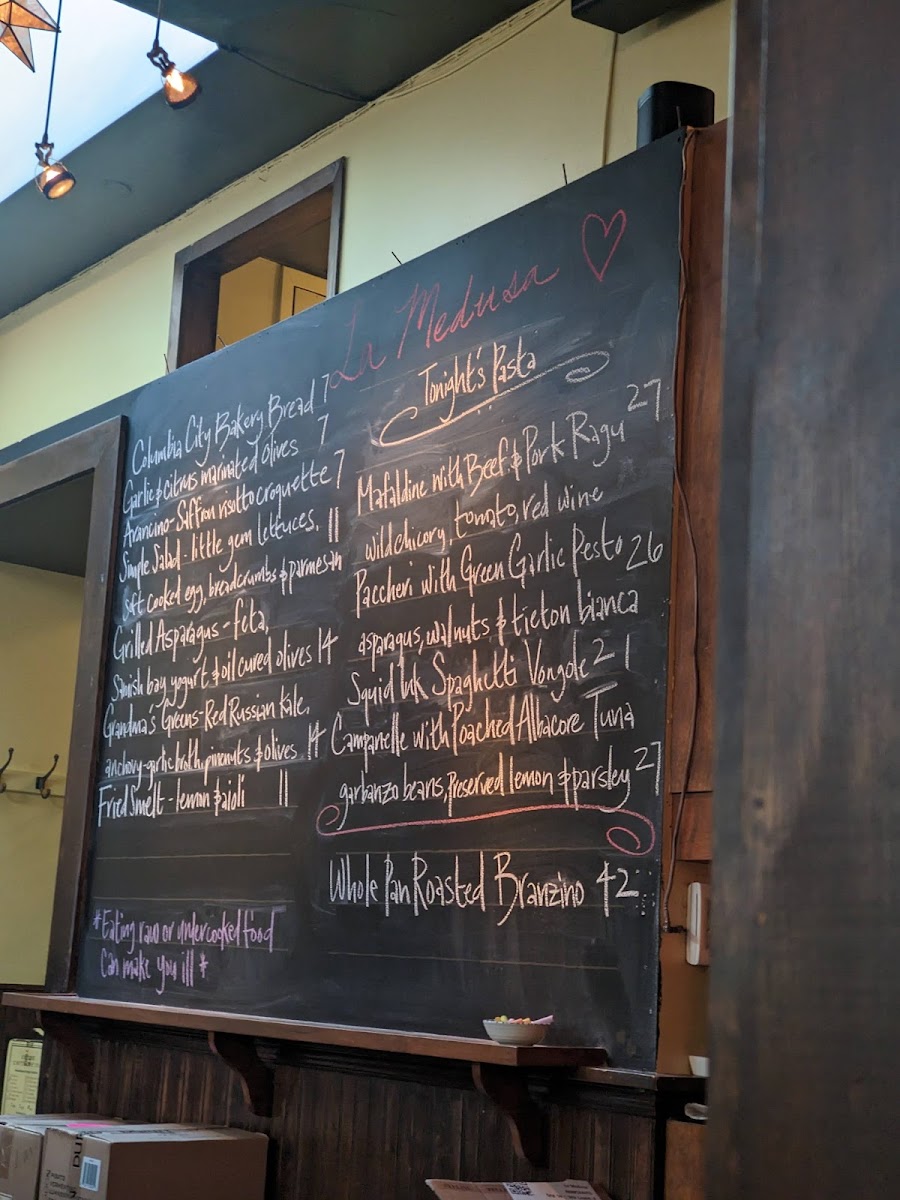 La Medusa
Columbia City Bakery Bread 7
Garlic & citrus marinated olives 7
Arancino-Saffron risotto croquette 7
Simple Salad - little gem lettuces, 11
soft cooked egg, breadcrumbs & parmesan
Grilled Asparagus - feta,
Samish bay yogurt & oil cured olives 14
Grandma's Greens-Red Russian kale,
anchovy-garlic broth, pinenuts & olives 14
Fried Smelt - lemon & aioli 11
*Eating raw or undercooked food
can make you ill *
Tonight's Pasta
Mafaldine with Beef & Pork Ragu 27
wild chicory, tomato, red wine
Paccheri with Green Garlic Pesto 26
asparagus, walnuts & tieton bianca
Squid Ink Spaghetti Vongole 21
Campanelle with Poached Albacore Tuna
garbanzo beans, preserved lemon & parsley 27
Whole Pan Roasted Branzino 42